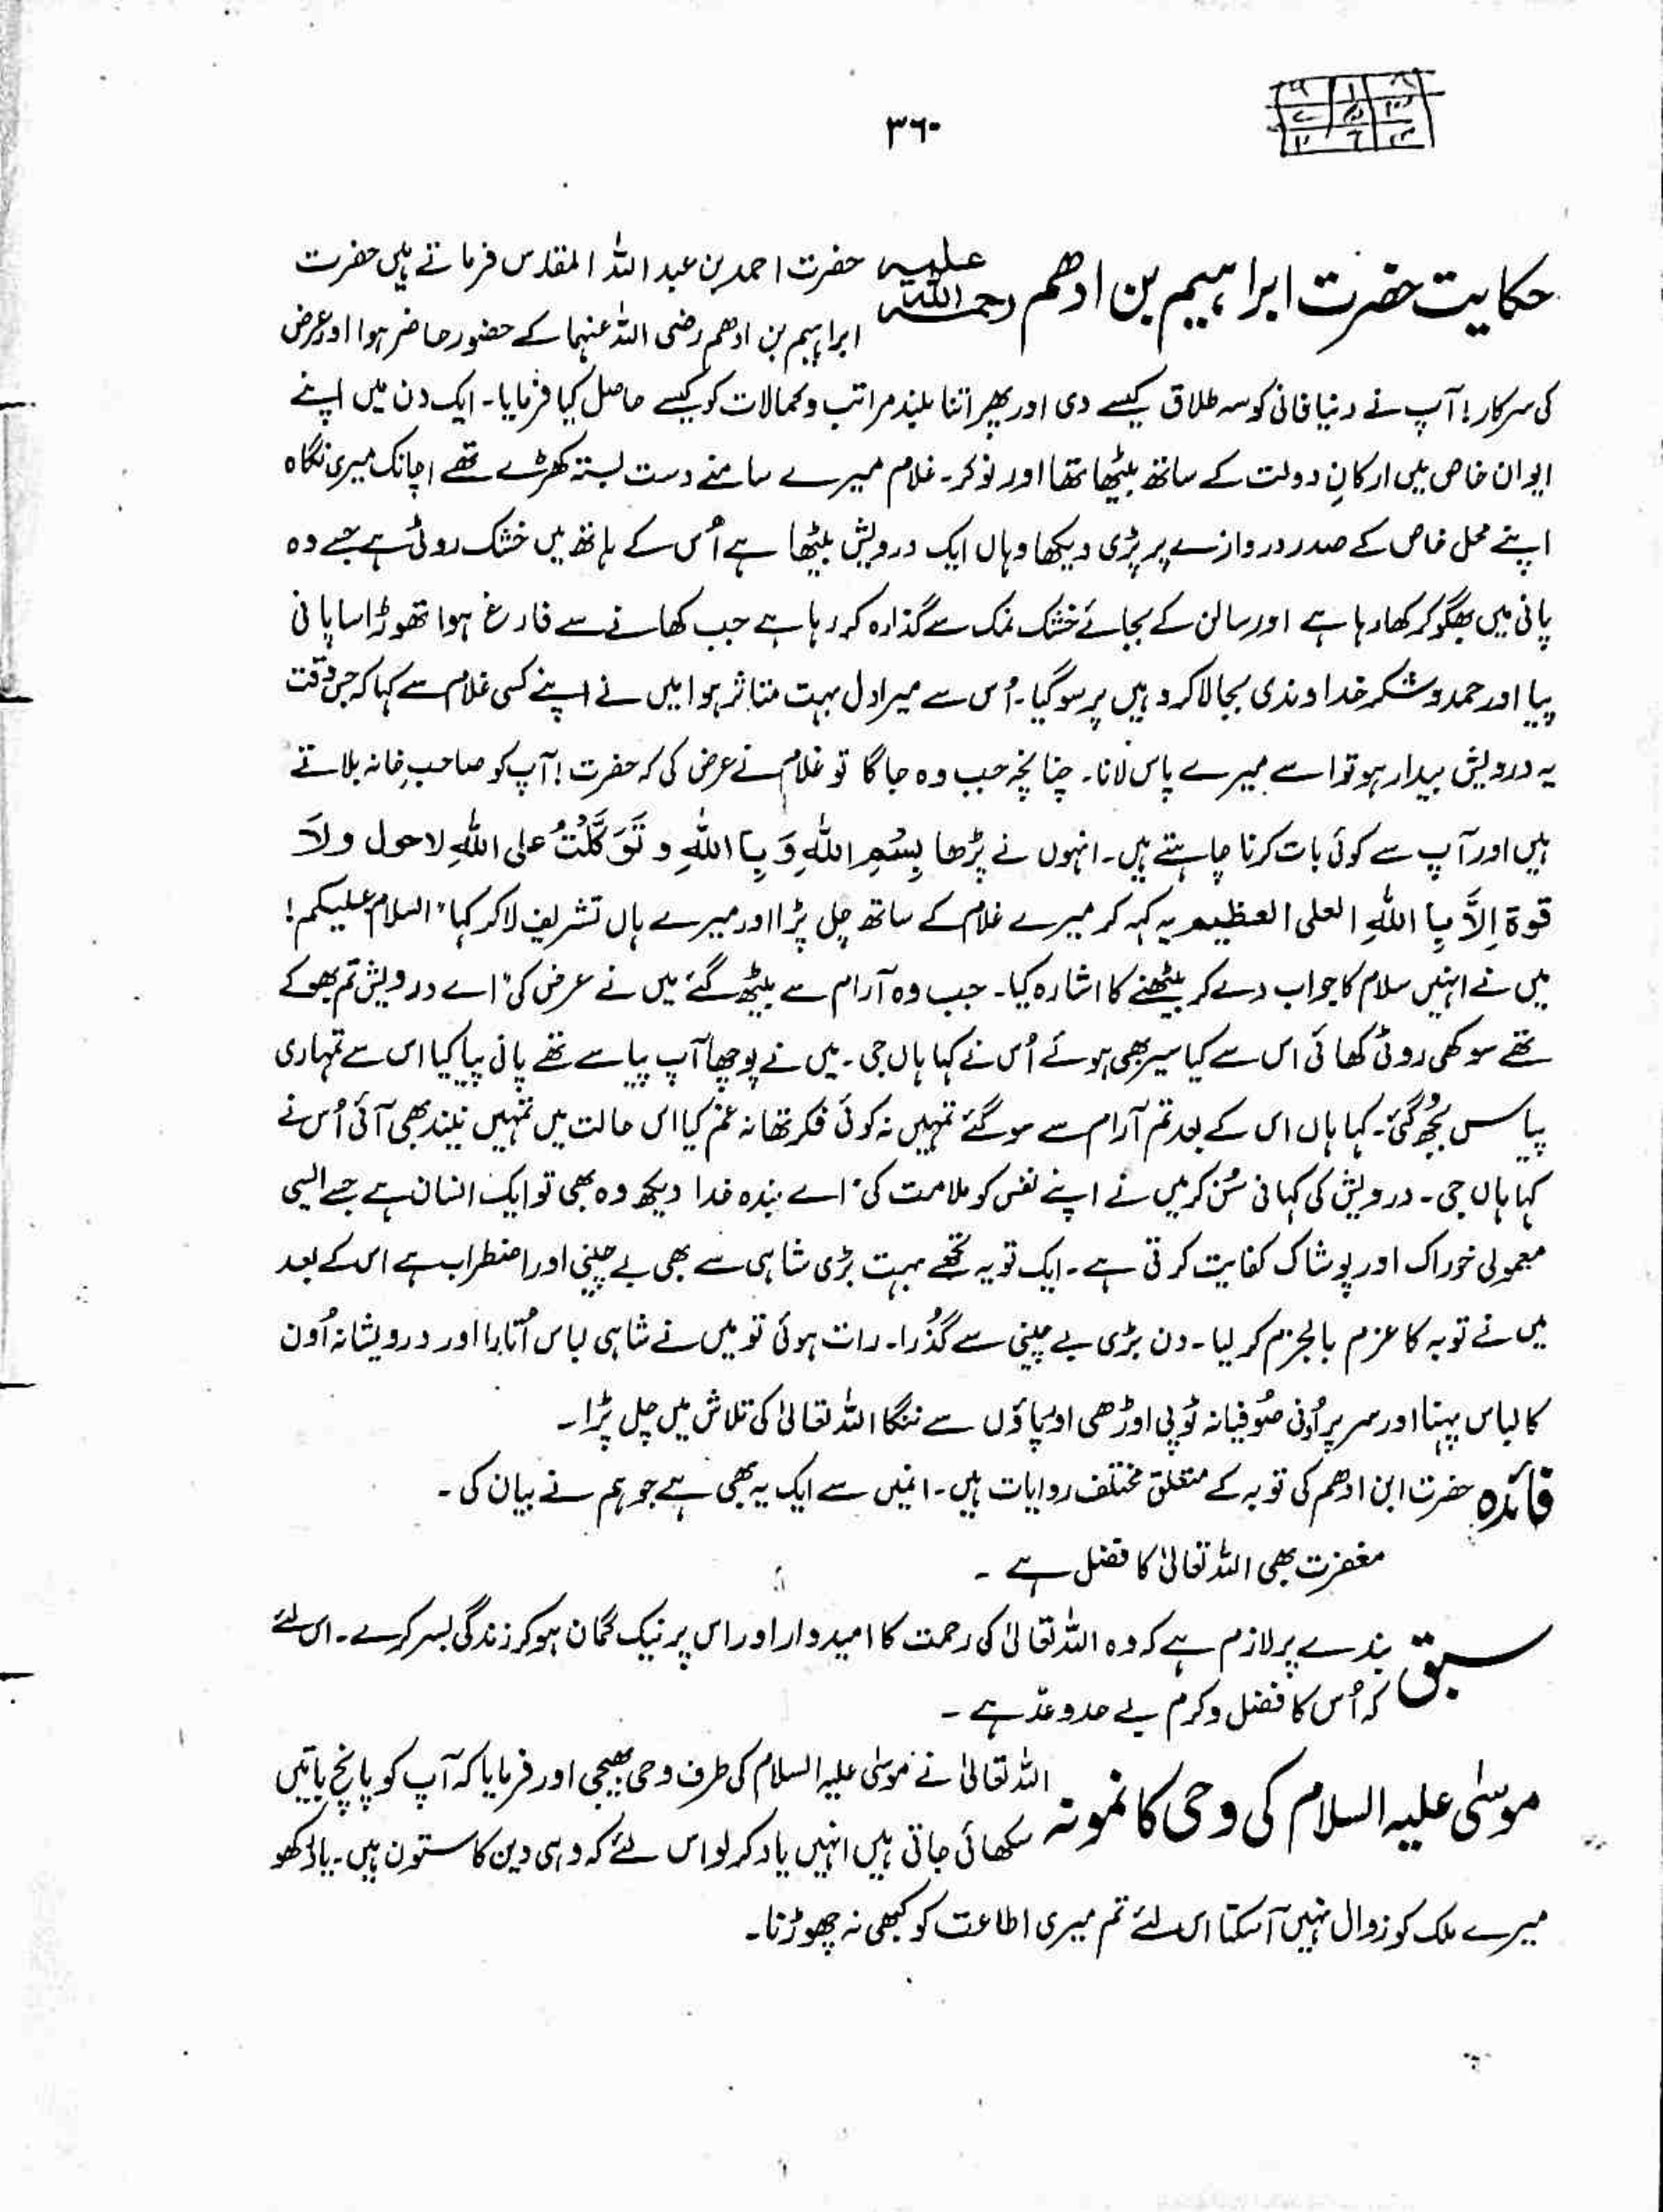 ۳۶۰
حکایت حضرت ابراہیم بن ادھم رحمۃ اللہ علیہ حضرت احمد بن عبد اللہ المقدس فرماتے ہیں حضرت
ابراہیم بن ادھم رضی اللہ عنہما کے حضور حاضر ہوا اور عرض
کی سرکار! آپ نے دنیا فانی کو سہ طلاق کیسے دی اور پھر اتنا بلند مراتب و کمالات کو کیسے حاصل کیا فرمایا۔ ایک دن میں اپنے
ایوان خاص میں ارکانِ دولت کے ساتھ بیٹھا تھا اور نوکر۔ غلام میرے سامنے دست بستہ کھڑے تھے اچانک میری نگاہ
اپنے محل خاص کے صدر دروازے پر پڑی دیکھا وہاں ایک درویش بیٹھا ہے اُس کے ہاتھ میں خشک روٹی ہے جسے وہ
پانی میں بھگو کر کھا رہا ہے اور سالن کے بجائے خشک نمک سے گذارہ کر رہا ہے جب کھانے سے فارغ ہوا تھوڑا سا پانی
پیا اور حمد و شکر خداوندی بجا لا کر وہیں پر سو گیا۔ اُس سے میرا دل بہت متاثر ہوا میں نے اپنے کسی غلام سے کہا کہ جس وقت
یہ درویش بیدار ہو تو اسے میرے پاس لانا۔ چنانچہ جب وہ جاگا تو غلام نے عرض کی کہ حضرت! آپ کو صاحبِ خانہ بلاتے
ہیں اور آپ سے کوئی بات کرنا چاہتے ہیں۔ انہوں نے پڑھا بِسْمِ اللہِ وَ بِا اللہِ و تَوَکَّلْتُ علی اللہِ لا حول ولَا
قوۃ اِلَّا بِا اللہِ العلی العظیم یہ کہہ کر میرے غلام کے ساتھ چل پڑا اور میرے ہاں تشریف لا کر کہا "السلام علیکم!
میں نے انہیں سلام کا جواب دے کر بیٹھنے کا اشارہ کیا۔ جب وہ آرام سے بیٹھ گئے میں نے عرض کی "اے درویش تم بھوکے
تھے سوکھی روٹی کھائی اس سے کیا سیر بھی ہوئے اُس نے کہا ہاں جی۔ میں نے پوچھا آپ پیاسے تھے پانی پیا کیا اس سے تمہاری
پیاس بجُھ گئی۔ کہا ہاں اس کے بعد تم آرام سے سو گئے تمہیں نہ کوئی فکر تھا نہ غم کیا اس حالت میں تمہیں نیند بھی آئی اُس نے
کہا ہاں جی۔ درویش کی کہانی سُن کر میں نے اپنے نفس کو ملامت کی "اے بندہ خدا دیکھ وہ بھی تو ایک انسان ہے جسے ایسی
معمولی خوراک اور پوشاک کفایت کرتی ہے۔ ایک تو یہ تجھے بہت بڑی شاہی سے بھی بے چینی اور اضطراب ہے اس کے بعد
میں نے توبہ کا عزم بالجزم کر لیا۔ دن بڑی بے چینی سے گذُرا۔ رات ہوئی تو میں نے شاہی لباس اُتارا اور درویشانہ اُون
کا لباس پہنا اور سر پر اُونی صُوفیانہ ٹوپی اوڑھی اور پاؤں سے ننگا اللہ تعالیٰ کی تلاش میں چل پڑا۔
فائدہ حضرت ابن ادھم کی توبہ کے متعلق مختلف روایات ہیں۔ انمیں سے ایک یہ بھی ہے جو ہم نے بیان کی۔
مغفرت بھی اللہ تعالیٰ کا فضل ہے۔
سبق بندے پر لازم ہے کہ وہ اللہ تعالیٰ کی رحمت کا امیدوار اور اس پر نیک گمان ہو کر زندگی بسر کرے۔ اس لئے
کہ اُس کا فضل و کرم بے حد و عدّ ہے۔
موسٰی علیہ السلام کی وحی کا نمونہ اللہ تعالیٰ نے موسٰی علیہ السلام کی طرف وحی بھیجی اور فرمایا کہ آپ کو پانچ باتیں
سکھائی جاتی ہیں انہیں یاد کر لو اس لئے کہ وہی دین کا ستون ہیں۔ یاد رکھو
میرے ملک کو زوال نہیں آ سکتا اس لئے تم میری اطاعت کو کبھی نہ چھوڑنا۔